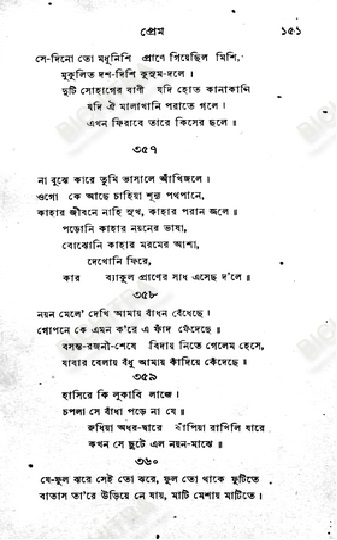 প্রেম ১৫১
সে-দিনো তো মধুনিশি প্রাণে গিয়েছিল মিশি,
মুকুলিত দশ-দিশি কুসুম-দলে।
দুটি সোহাগের বাণী যদি হোত কানাকানি
যদি ঐ মালাখানি পরাতে গলে।
এখন ফিরাবে তারে কিসের ছলে।
৩৫৭
না বুঝে কারে তুমি ভাসালে আঁখিজলে।
ওগো কে আছে চাহিয়া শূন্য পথপানে,
কাহার জীবনে নাহি সুখ, কাহার পরান জ্বলে।
পড়োনি কাহার নয়নের ভাষা,
বোঝোনি কাহার মরমের আশা,
দেখোনি ফিরে,
কার ব্যাকুল প্রাণের সাধ এসেছ দ'লে।
৩৫৮
নয়ন মেলে' দেখি আমায় বাঁধন বেঁধেছে।
গোপনে কে এমন ক'রে এ ফাঁদ ফেঁদেছে।
বসন্ত-রজনী-শেষে বিদায় নিতে গেলেম হেসে,
যাবার বেলায় বঁধু আমায় কাঁদিয়ে কেঁদেছে।
৩৫৯
হাসিরে কি লুকাবি লাজে।
চপলা সে বাঁধা পড়ে না যে।
রুধিয়া অধর-দ্বারে ঝাঁপিয়া রাখিলি যারে
কখন সে ছুটে এল নয়ন-মাঝে।
৩৬০
যে-ফুল ঝরে সেই তো ঝরে, ফুল তো থাকে ফুটিতে
বাতাস তা'রে উড়িয়ে নে যায়, মাটি মেশায় মাটিতে।